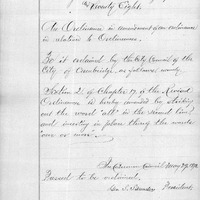 Twenty Eight.
An Ordinance in amendment of an ordinance
in relation to Ordinances.
Be it ordained by the City Council of the
City of Cambridge, as follows, namely
Section 2 of Chapter 17 of the Revised
Ordinances is hereby amended by striking
out the word "all" in the second line
and inserting in place thereof the words
"one or more".
In Common Council May 29, 18
Passed to be ordained,
Geo. F. President.